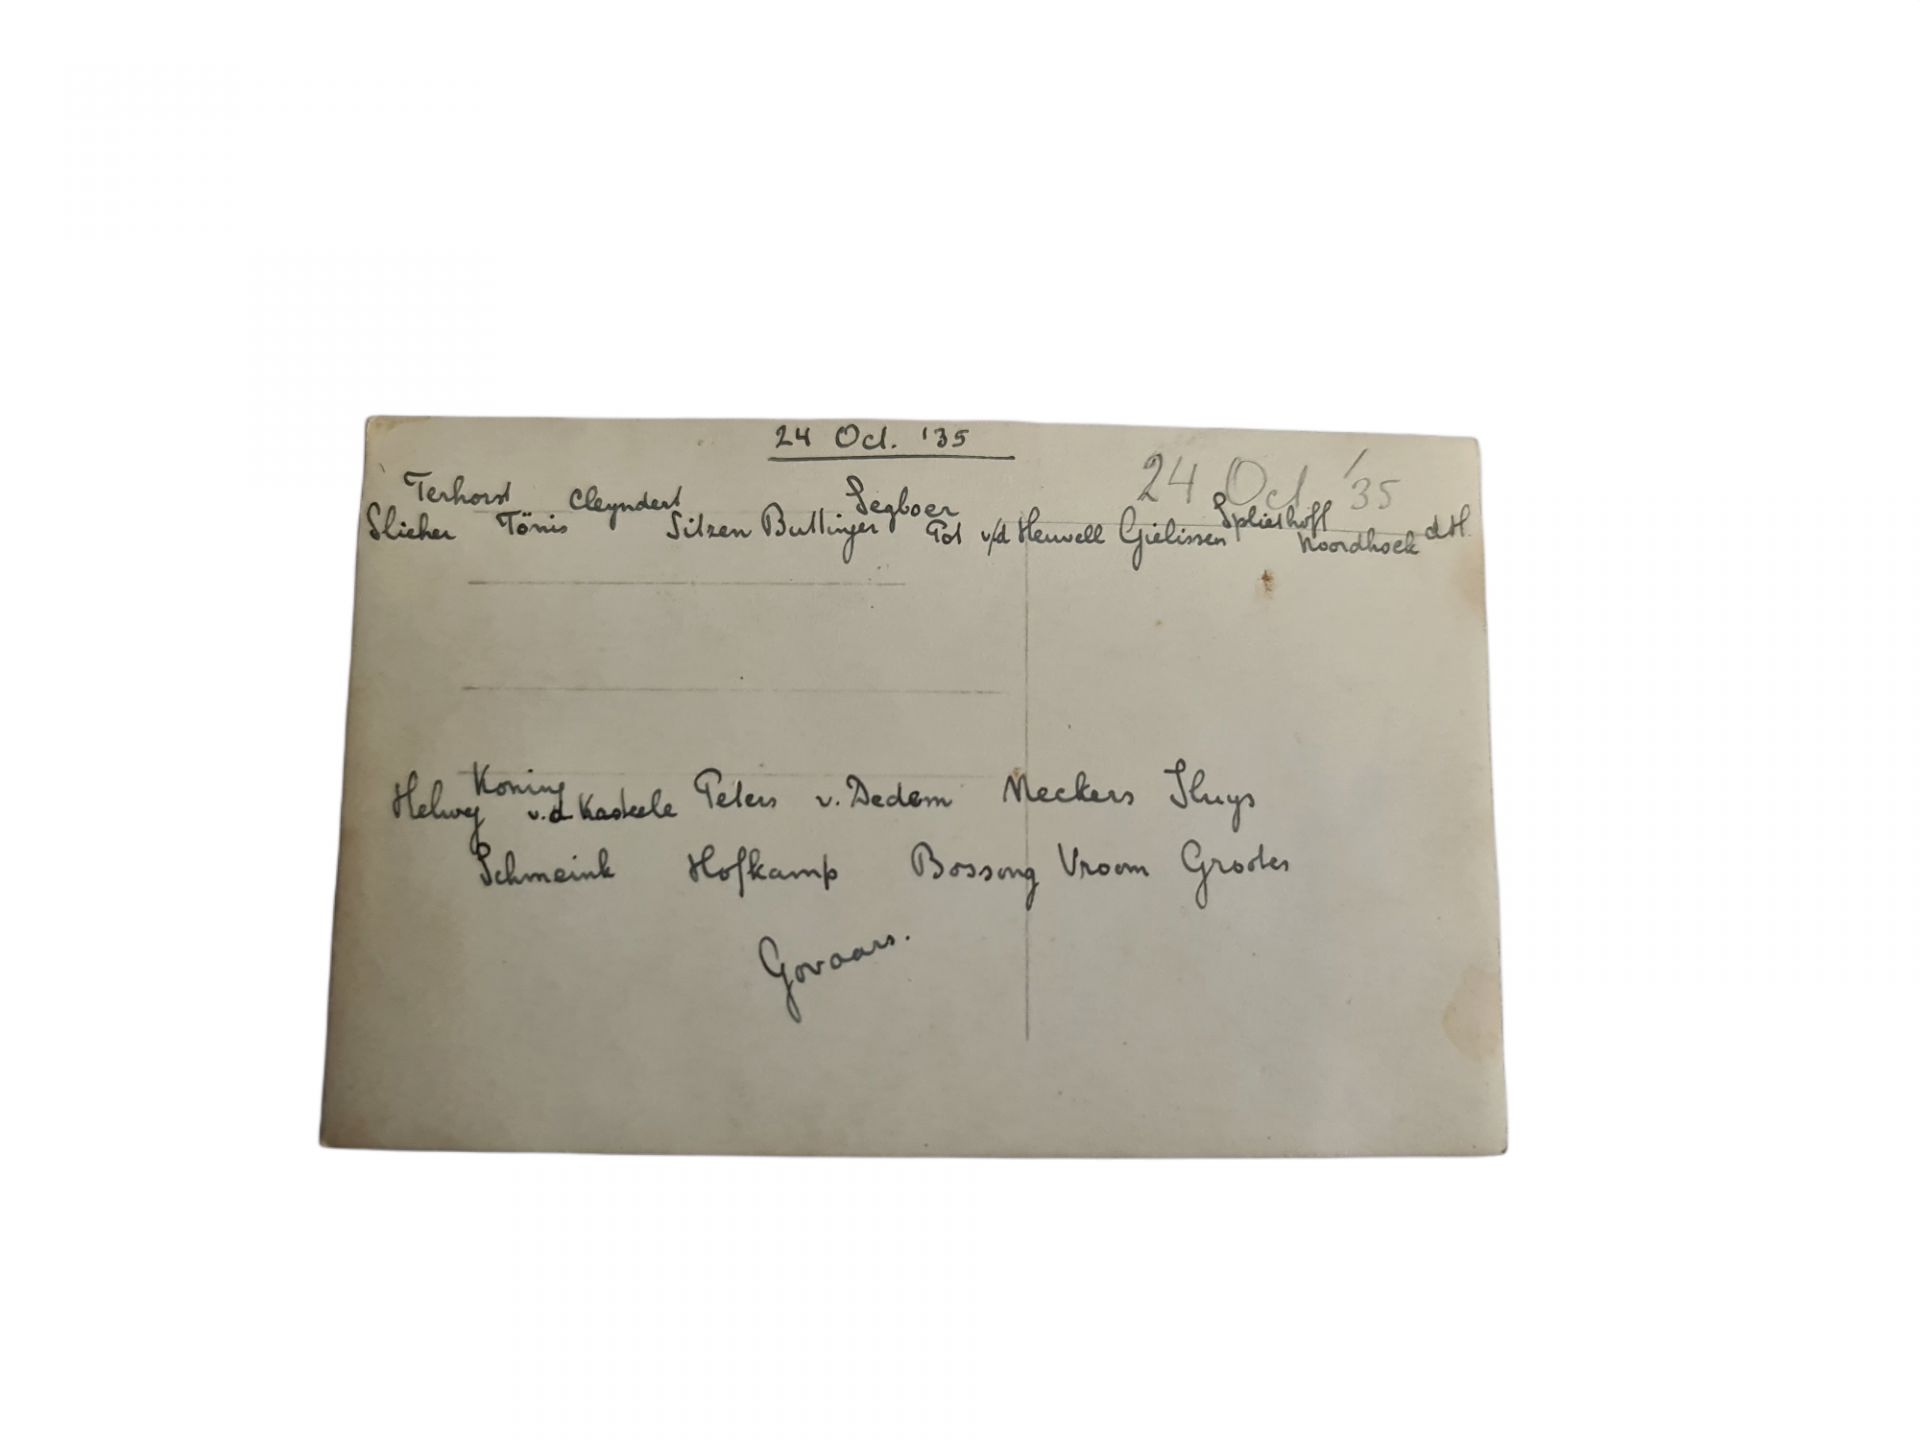 24 Oct. '35
24 Oct '35
Terhorst Cleyndert Segboer Spliethoff
Slicher Tönis Sitzen Bullinger Pot v/d Heuvell Gielissen Noordhoek d.H.
Koning
Helweg v.d. Kasteele Peters v. Dedem Meckers Sluys
Schmeink Hofkamp Bossong Vroom Grootes
Govaars.